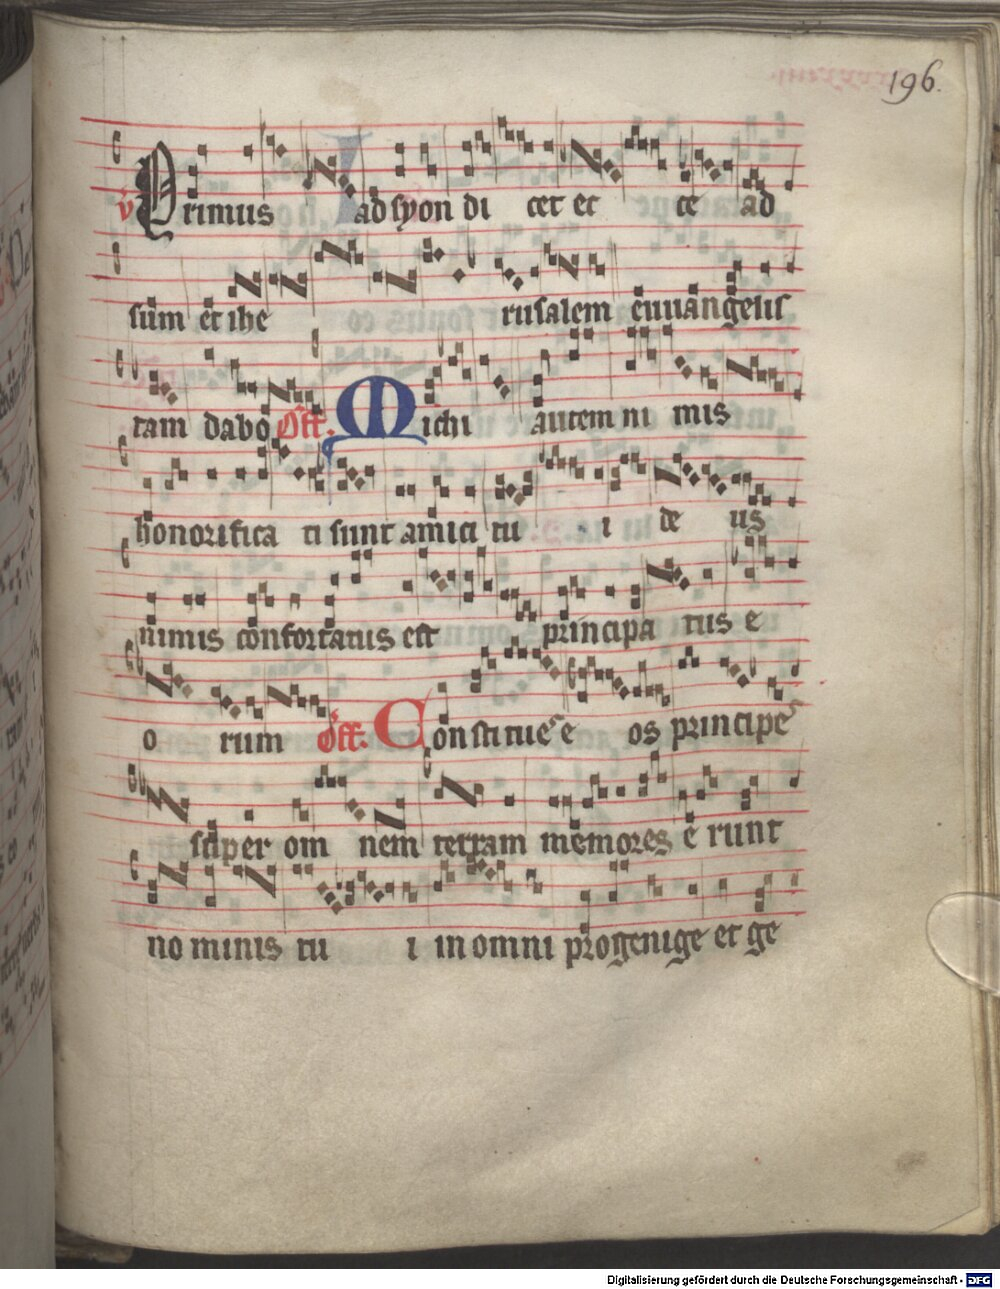 196.
v Primus ad syon di cet et ce ad
sum et ihe rusalem euuangelis
tam dabo Off. Michi autem ni mis
honorifica ti sunt amici tu i de us
nimis confortatus est principa tus e
o rum Off. Constitues e os principes
super om nem terram memores e runt
no minis tu i in omni progenige et ge
Digitalisierung gefördert durch die Deutsche Forschungsgemeinschaft - DFG